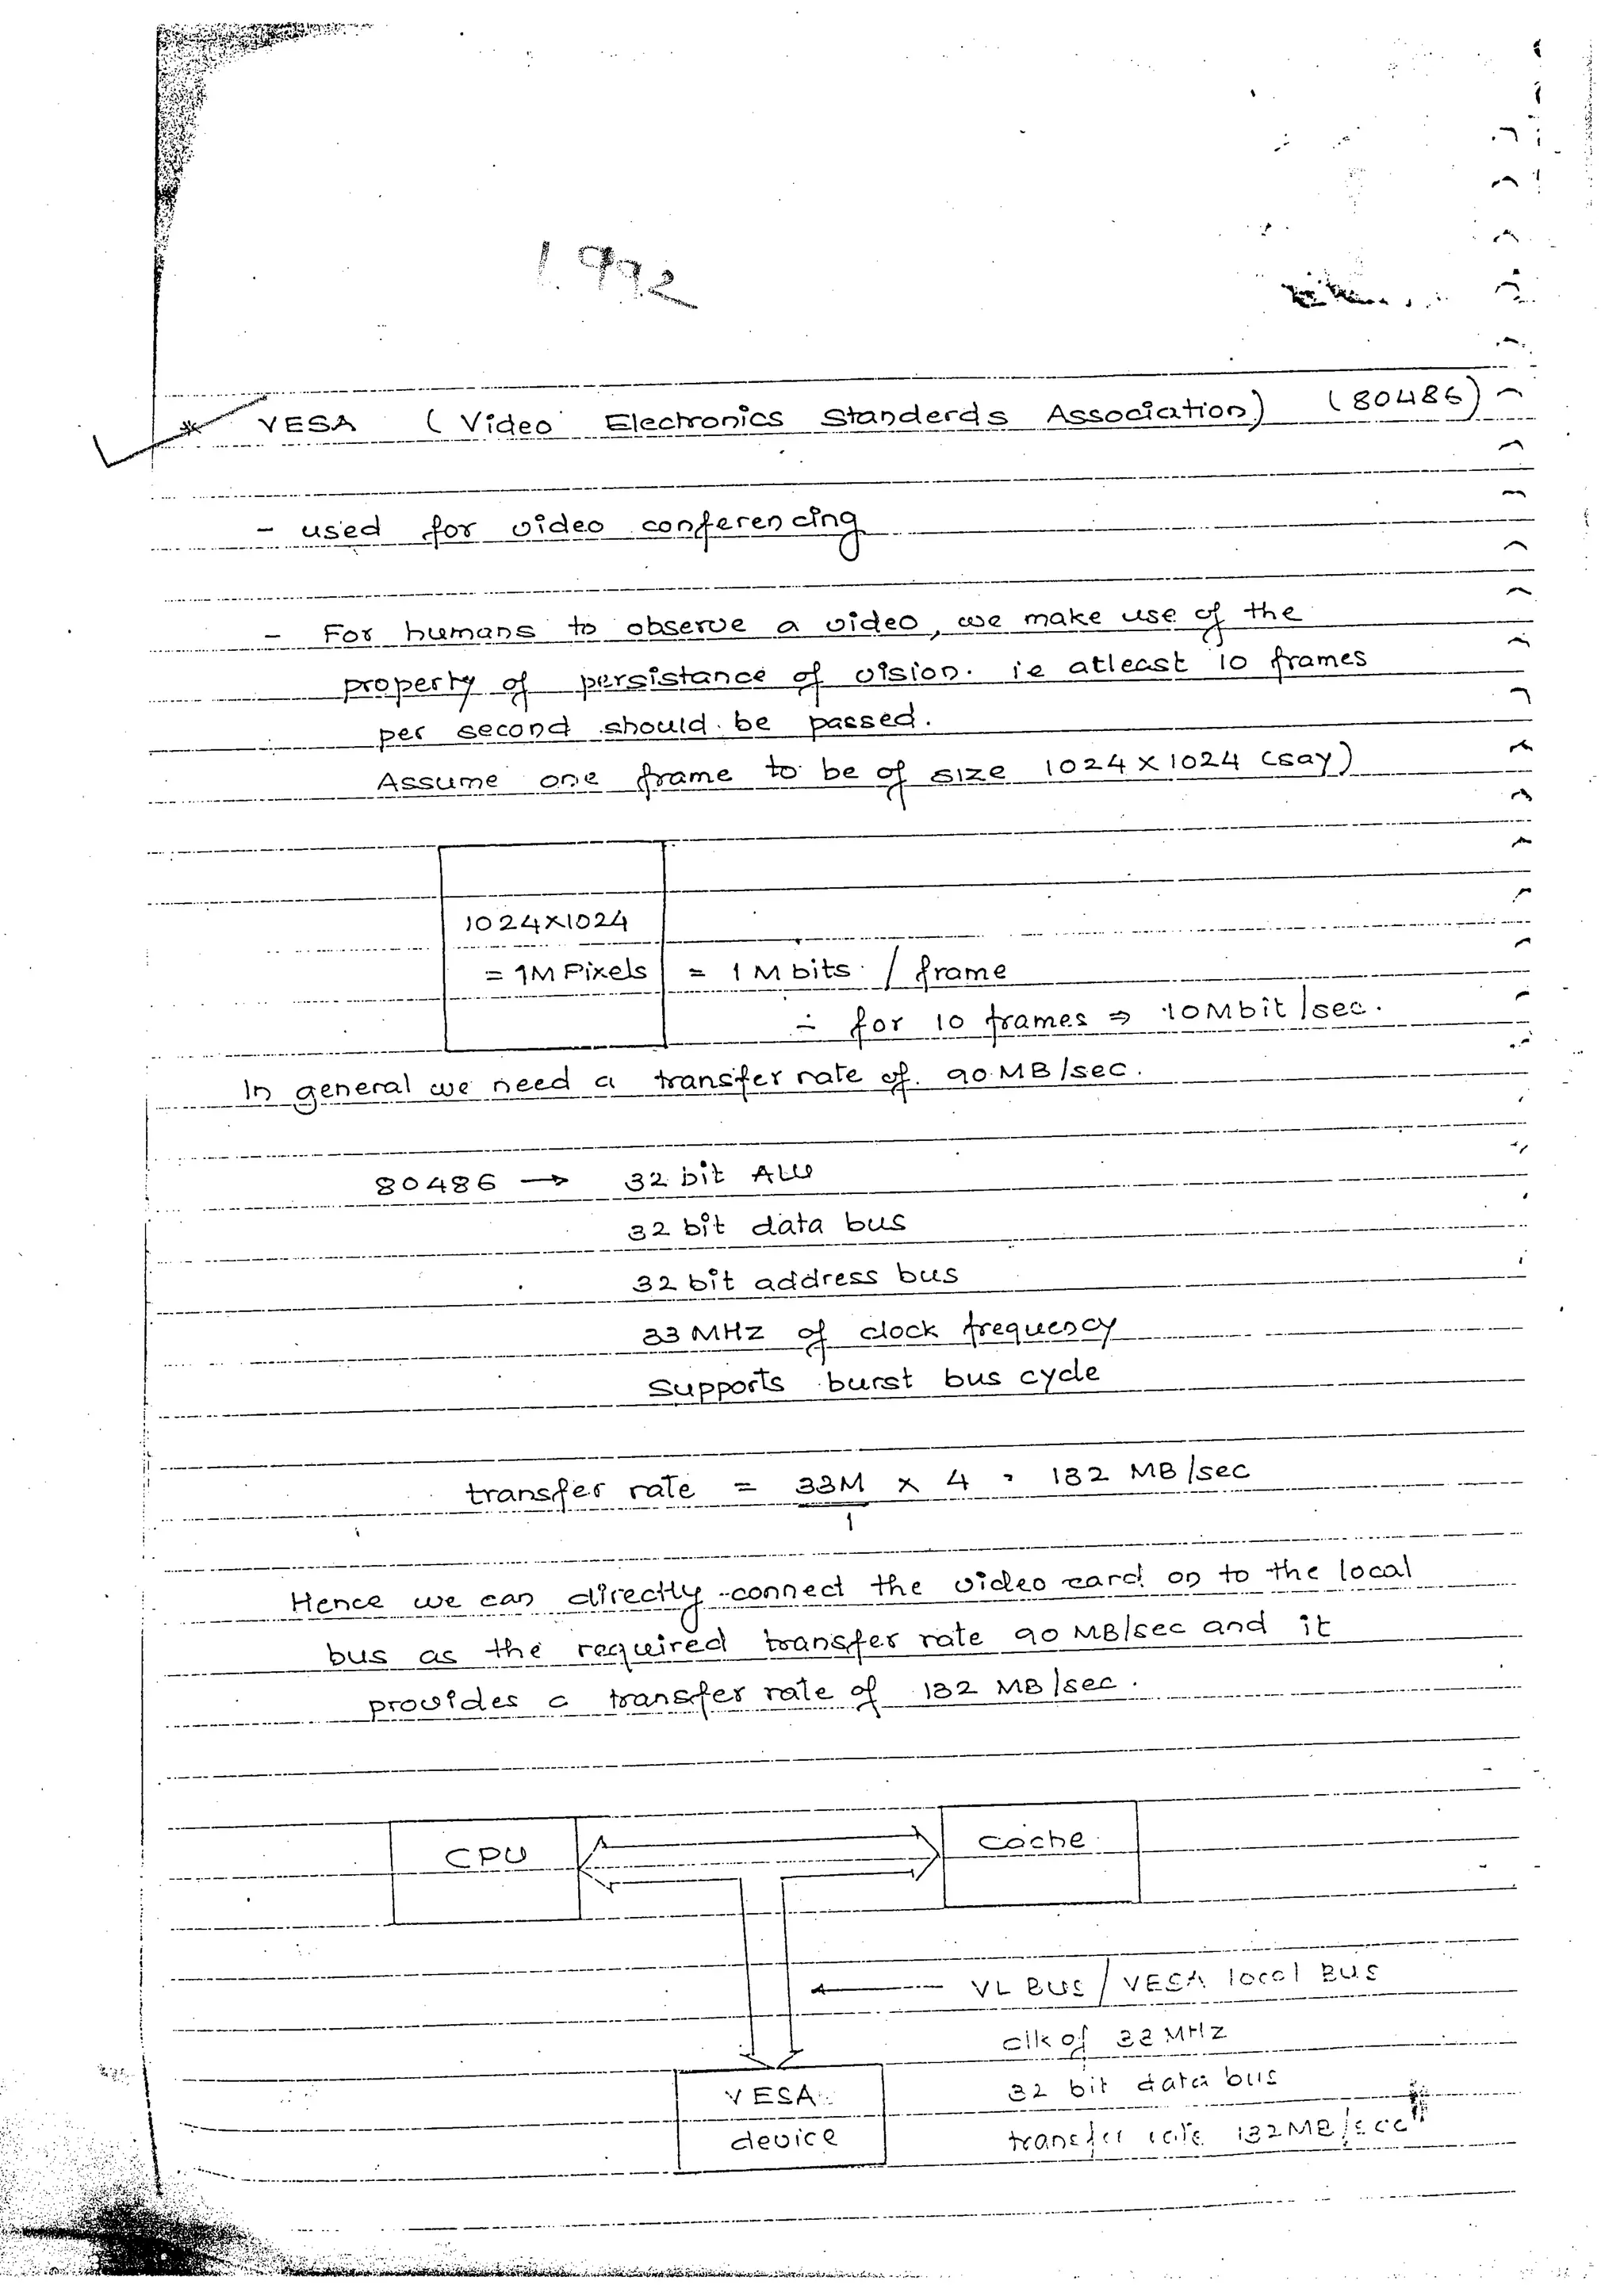 1992
* VESA ( Video Electronics Standerds Association) (80486)
- used for video conferencing
- For humans to observe a video, we make use of the
property of persistance of vision. ie atleast 10 frames
per second should be passed.
Assume one frame to be of size 1024 × 1024 (say)
1024×1024
= 1M Pixels = 1 M bits / frame
∴ for 10 frames ⇒ 10Mbit/sec.
In general we need a transfer rate of 90 MB/sec.
80486 → 32 bit ALU
32 bit data bus
32 bit address bus
33 MHZ of clock frequency
Supports burst bus cycle
transfer rate = 33M × 4 = 132 MB/sec
1
Hence we can directly connect the video card on to the local
bus as the required transfer rate 90 MB/sec and it
provides a transfer rate of 132 MB/sec.
CPU Cache
← VL BUS / VESA local BUS
clk of 33 MHZ
VESA 32 bit data bus
device transfer rate 132MB/sec